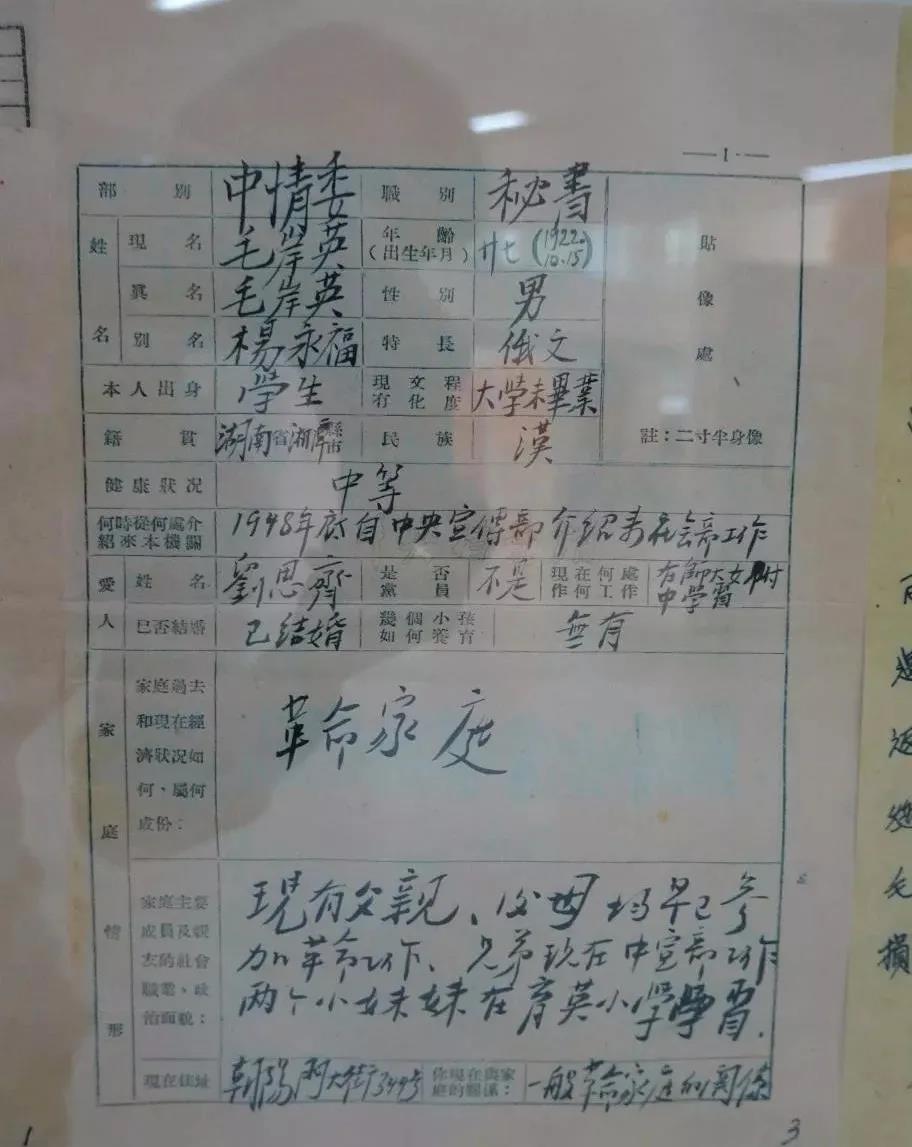 —1·—
部別 中情委 職別 秘書
姓名 現名 毛岸英 年齡(出生年月) 廿七(1922.10.15)
真名 毛岸英 性別 男
別名 楊永福 特長 俄文
貼像處
註：二寸半身像
本人出身 學生 現有文化程度 大学未畢業
籍貫 湖南省湘潭縣市 民族 漢
健康狀況 中等
何時從何處介紹來本機關 1948年底自中央宣傳部介紹來社会部工作
愛人 姓名 劉思齊 是否黨員 不是 現在何處作何工作 在師大女附中学習
已否結婚 已結婚 幾個小孩如何養育 無有
家庭情形
家庭過去
和現在經
濟狀況如
何、屬何
成份：
革命家庭
家庭主要
成員及親
友的社會
職業、政
治面貌：
現有父親、父母均早已参
加革命工作、兄弟現在中宣部工作
两个小妹妹在育英小学學習.
現在住址 朝陽门大街344号 你現在與家庭的關係： 一般革命家庭的関係
1
3
損